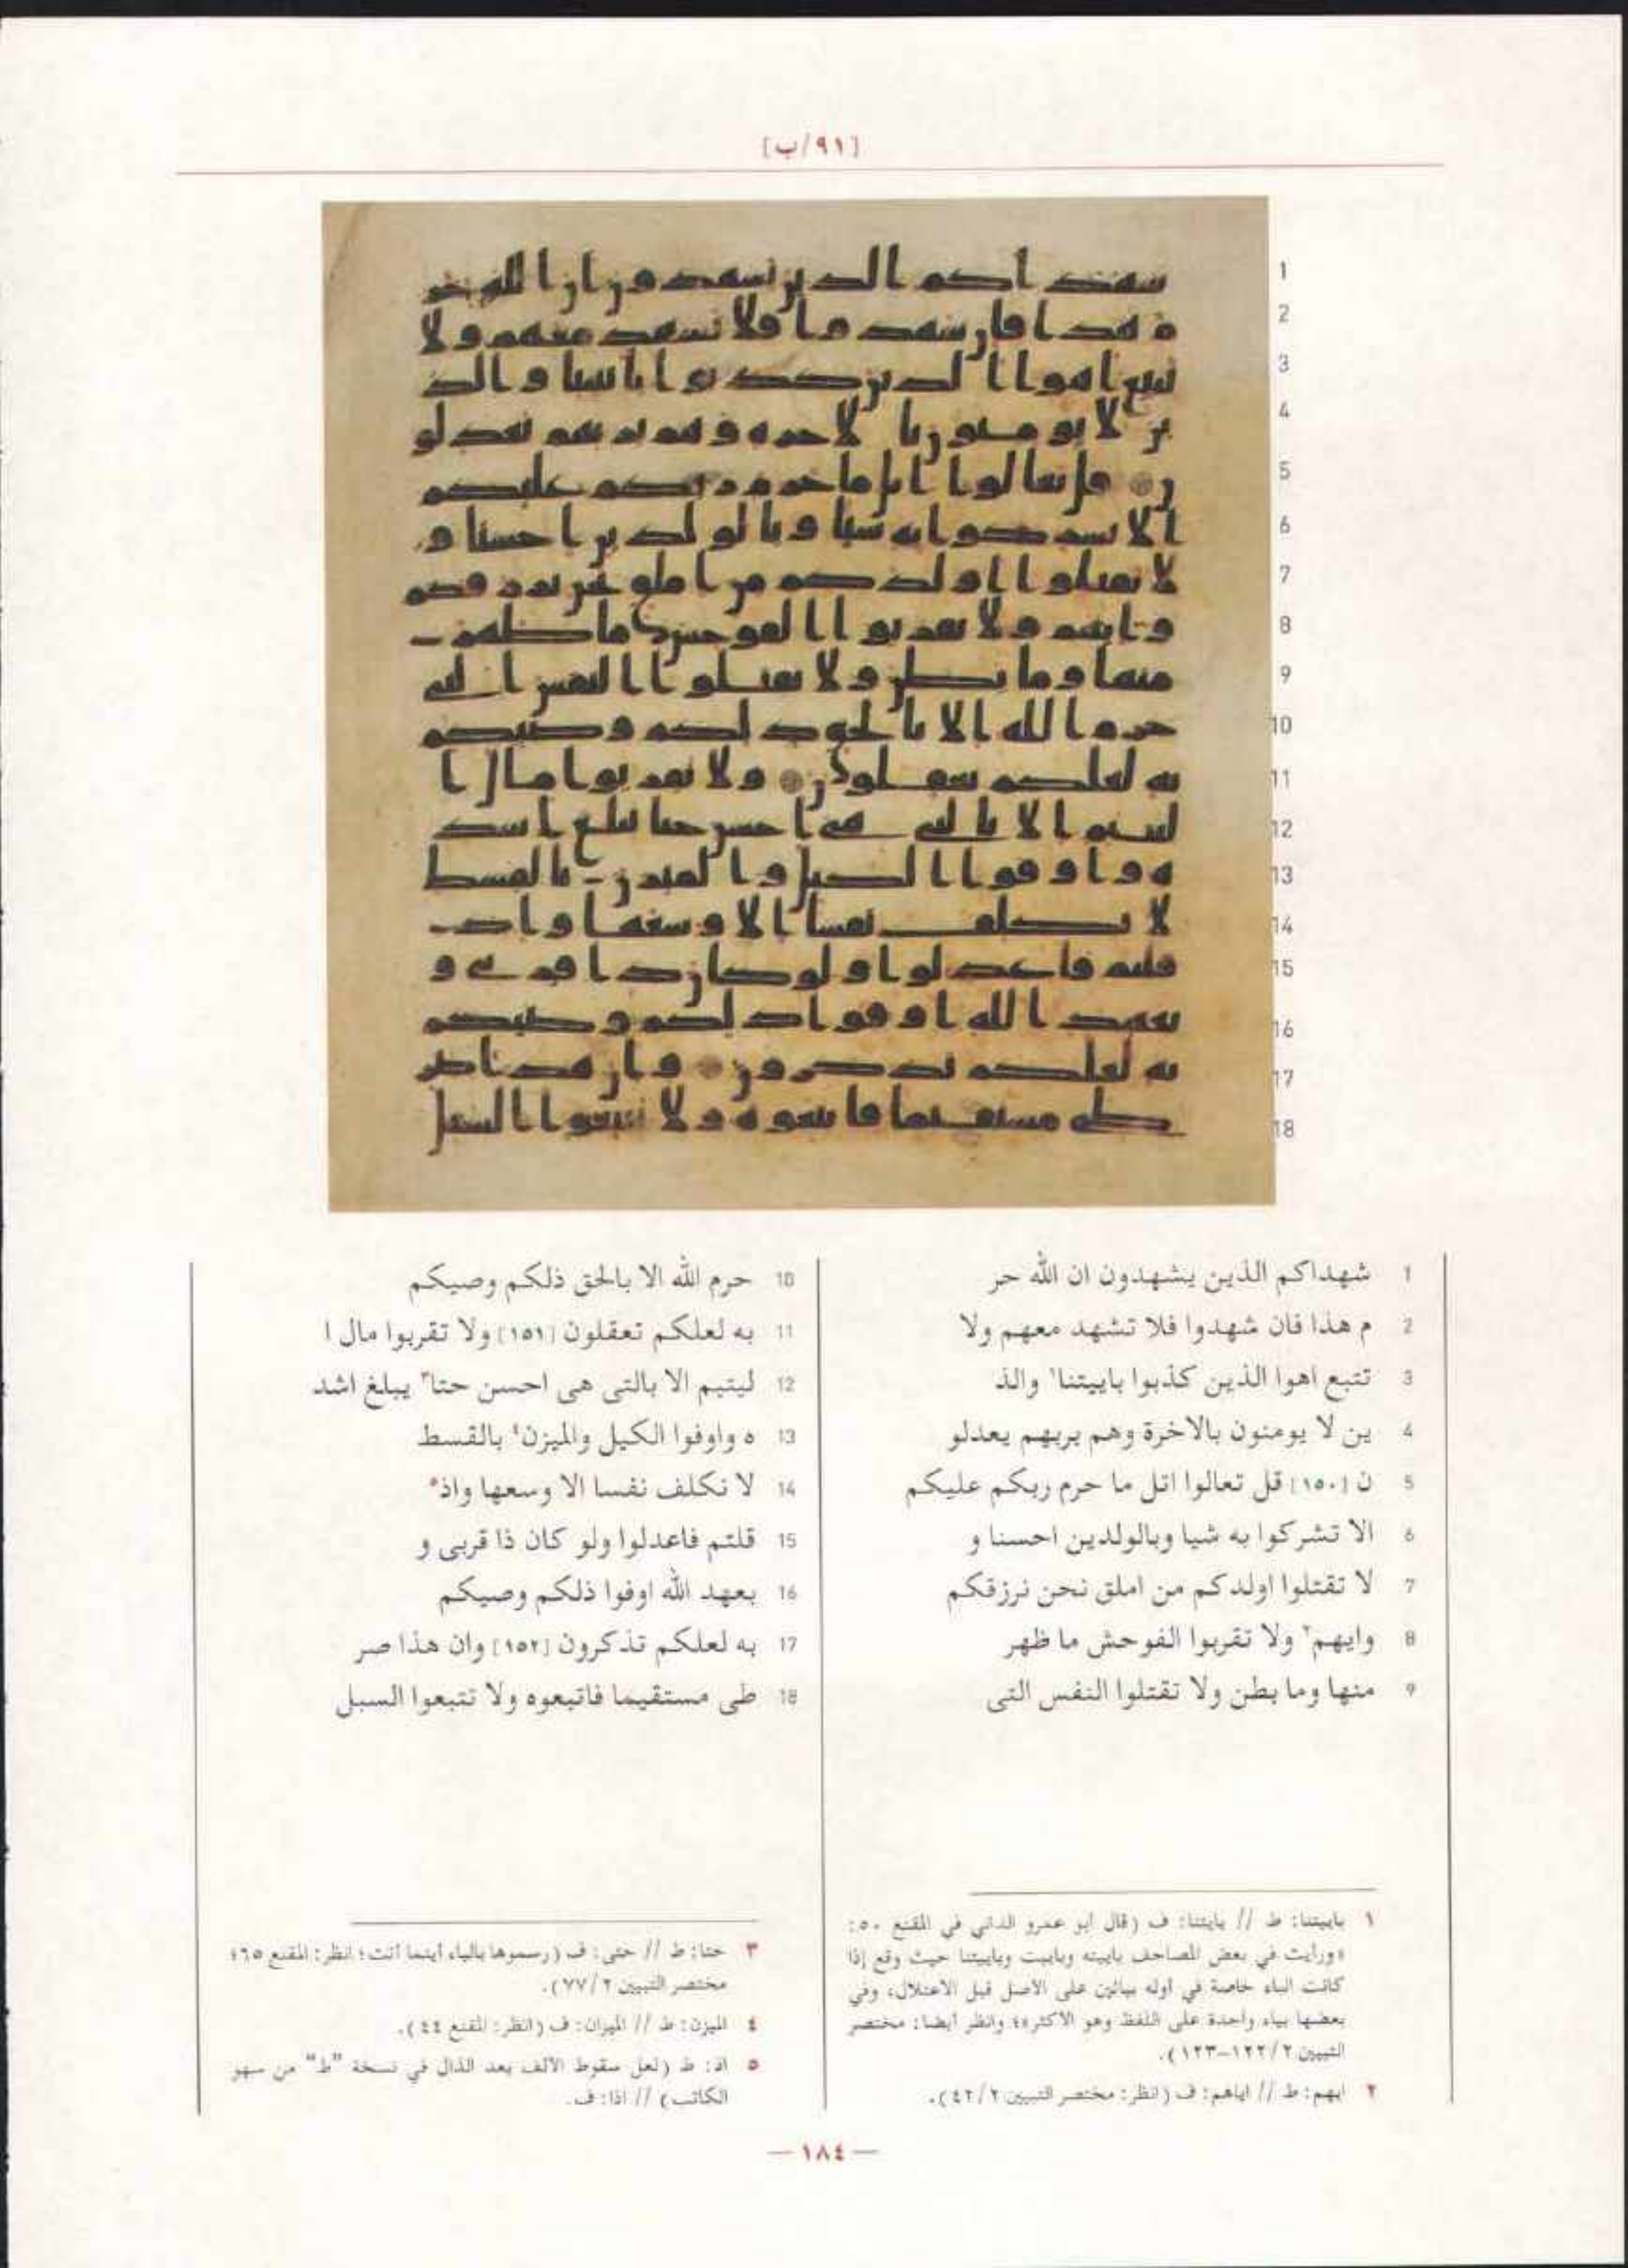 [٩١/ب]
1 شهداكم الذين يشهدون ان الله حر
2 م هذا فان شهدوا فلا تشهد معهم ولا
3 تتبع اهوا الذين كذبوا باييتنا١ والذ
4 ين لا يومنون بالاخرة وهم بربهم يعدلو
5 ن [١٥٠] قل تعالوا اتل ما حرم ربكم عليكم
6 الا تشركوا به شيا وبالولدين احسنا و
7 لا تقتلوا اولدكم من املق نحن نرزقكم
8 وايهم٢ ولا تقربوا الفوحش ما ظهر
9 منها وما بطن ولا تقتلوا النفس التى
10 حرم الله الا بالحق ذلكم وصيكم
11 به لعلكم تعقلون [١٥١] ولا تقربوا مال ا
12 ليتيم الا بالتى هى احسن حتا٣ يبلغ اشد
13 ه واوفوا الكيل والميزن٤ بالقسط
14 لا نكلف نفسا الا وسعها واذ٥
15 قلتم فاعدلوا ولو كان ذا قربى و
16 بعهد الله اوفوا ذلكم وصيكم
17 به لعلكم تذكرون [١٥٢] وان هذا صر
18 طى مستقيما فاتبعوه ولا تتبعوا السبل
١ باييتنا: ط // بايتنا: ف (قال ابو عمرو الداني في المقنع ٥٠:
«ورأيت في بعض المصاحف باييته وباييت وباييتنا حيث وقع إذا
كانت الباء خاصة في اوله بيائين على الاصل قبل الاعتلال، وفي
بعضها بياء واحدة على اللفظ وهو الاكثر»؛ وانظر أيضا: مختصر
التبيين ١٢٢/٢-١٢٣).
٢ ايهم: ط // اياهم: ف (انظر: مختصر التبيين ٤٢/٢).
٣ حتا: ط // حتى: ف (رسموها بالياء أينما أتت؛ انظر: المقنع ٦٥؛
مختصر التبيين ٧٧/٢).
٤ الميزن: ط // الميزان: ف (انظر: المقنع ٤٤).
٥ اذ: ط (لعل سقوط الالف بعد الذال في نسخة "ط" من سهو
الكاتب) // اذا: ف.
— ١٨٤ —